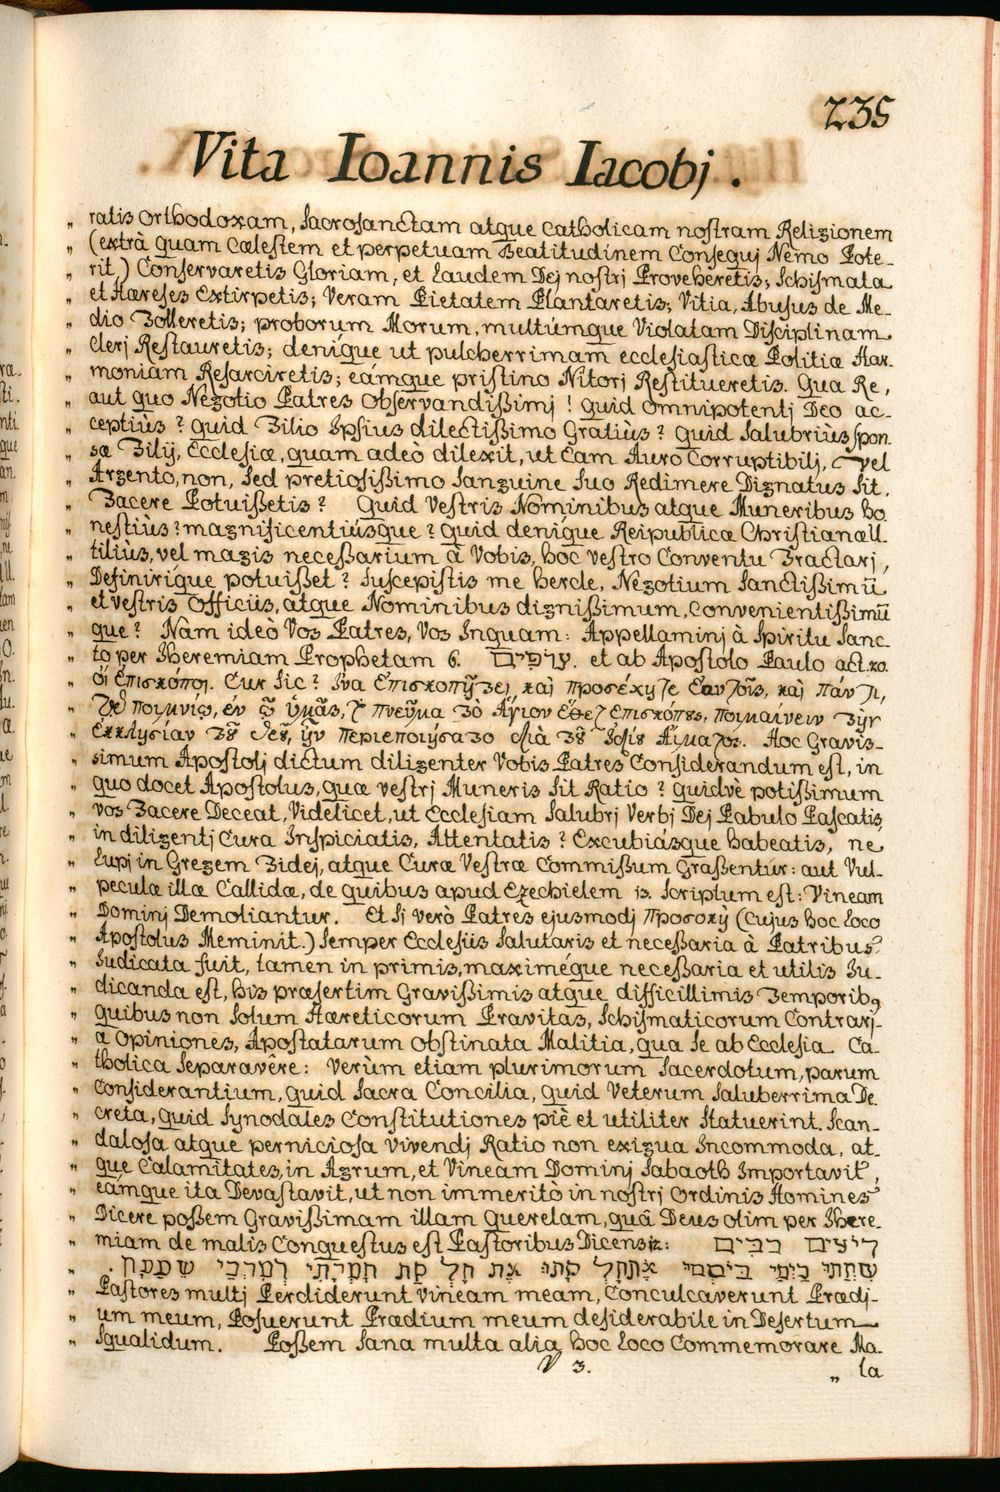 235
Vita Ioannis Iacobj.
„ ratis Orthodoxam, Sacrosanctam atque Catholicam nostram Religionem
„ (extrà quam Cælestem et perpetuam Beatitudinem Consequj Nemo Pote-
„ rit) Conservaretis Gloriam, et Laudem Dej nostrj Proveheretis; Schismata
„ et Hæreses Extirpetis; Veram Pietatem Plantaretis; Vitia, Abusus de Me-
„ dio Tolleretis; proborum Morum, multúmque Violatam Disciplinam
„ Clerj Restauretis; deníque ut pulcherrimam ecclesiasticæ Politiæ Har-
„ moniam Resarciretis; eámque pristino Nitorj Restitueretis. Qua Re,
„ aut quo Negotio Patres Observandißimj! quid omnipotentj Deo ac-
„ ceptiùs? quid Filio Ipsius dilectissimo Gratiùs? quid Salubriùs spon-
„ sæ Filij, Ecclesiæ, quam adeò dilexit, ut Eam Auro Corruptibilj, vel
„ Argento, non, Sed pretiosißimo Sanguine Suo Redimere Dignatus Sit,
„ Facere Potuißetis? Quid Vestris Nominibus atque Muneribus ho-
„ nestiùs? magnificentiúsque? quid denique Reipublicæ Christianæ U-
„ tiliùs, vel magis neceßarium à Vobis, hoc Vestro Conventu Tractarj,
„ Definirique potuißet? Suscepistis me hercle, Negotium Sanctißimū
„ et vestris Officiis, atque Nominibus dignißimum, Convenientißimū
„ que? Nam ideò Vos Patres, Vos Inquam: Appellaminj à Spiritu Sanc-
„ to per Iheremiam Prophetam 6. צופים. et ab Apostolo Paulo act. 20.
„ οἱ ἐπισκόποι. Cur Sic? Ἵνα
„ Ἐκκλησίαν τοῦ Θεοῦ, ἣν περιεποιήσατο διὰ τοῦ ἰδίου Αἵματος. Hoc Gravis-
„ simum Apostolj dictum diligenter Vobis Patres Considerandum est, in
„ quo docet Apostolus, quæ vestrj Muneris Sit Ratio? quidvè potißimum
„ vos Facere Deceat, Videlicet, ut Ecclesiam Salubrj Verbj Dej Pabulo Pascatis,
„ in diligentj Cura Inspiciatis, Attentatis? Excubiásque habeatis, ne
„ Lupj in Gregem Fidej, atque Curæ Vestræ Commißum Graßentur: aut Vul-
„ peculæ illæ Callidæ, de quibus apud Ezechielem 13. Scriptum est: Vineam
„ Dominj Demoliantur. Et Si verò Patres ejusmodj προσοχὴ (Cujus hoc Loco
„ Apostolus Meminit.) Semper Ecclesiis Salutaris et neceßaria à Patribus
„ Iudicata fuit, tamen in primis, maximéque neceßaria et utilis Iu-
„ dicanda est, his præsertim Gravißimis atque difficillimis Temporibꝰ
„ quibus non Solum Hæreticorum Pravitas, Schismaticorum Contrarj-
„ æ Opiniones, Apostatarum obstinata Malitia, qua Se ab Ecclesia Ca-
„ tholica Separavêre: Verùm etiam plurimorum Sacerdotum, parum
„ Considerantium, quid Sacra Concilia, quid Veterum Saluberrima De-
„ creta, quid Synodales Constitutiones piè et utiliter Statuerint. Scan-
„ dalosa atque perniciosa vivendj Ratio non exigua Incommoda, at-
„ que Calamitates, in Agrum, et Vineam Dominj Sabaoth Importavit,
„ eámque ita Devastavit, ut non immeritò in nostrj Ordinis Homines
„ Dicere poßem Gravißimam illam Querelam, quâ Deus olim per Ihere-
„ miam de malis Conquestus est Pastoribus Dicens 12:
„ Pastores multj Perdiderunt Vineam meam, Conculcaverunt Prædj-
„ um meum, Posuerunt Prædium meum desiderabile in Desertum
„ Squalidum. Poßem Sana multa alia hoc Loco Commemorare Ma-
V 3.
„ la